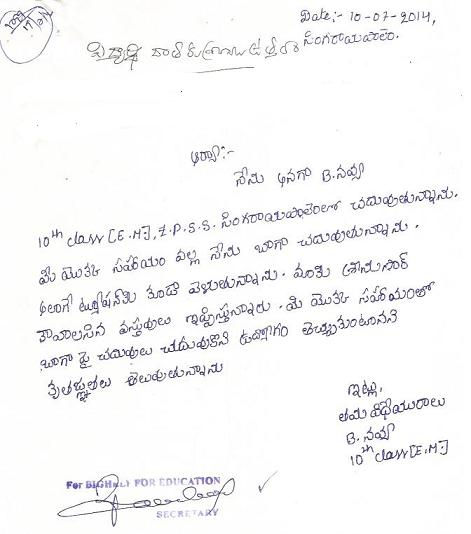 Date:- 10-07-2014,
సింగరాయపాలెం.
ఆర్యా:-
నేను అనగా B. నవ్య
10th class [E.M], Z.P.S.S. సింగరాయపాలెంలో చదువుతున్నాను.
మీ యొక్క సహాయం వల్ల నేను బాగా చదువుతున్నాను.
అలాగే ట్యూషన్‌కు కూడా వెళుతున్నాను. మాకు
కావాలసిన వస్తువులు ఇప్పిస్తున్నారు. మీ యొక్క సహాయంతో
బాగా పై చదువులు చదువుకొని ఉద్యోగం తెచ్చుకుంటానని
కృతజ్ఞతలు తెలుపుతున్నాను
ఇట్లు,
తమ విధేయురాలు
B. నవ్య
10th class [E.M]
For BIGHELP FOR EDUCATION
SECRETARY